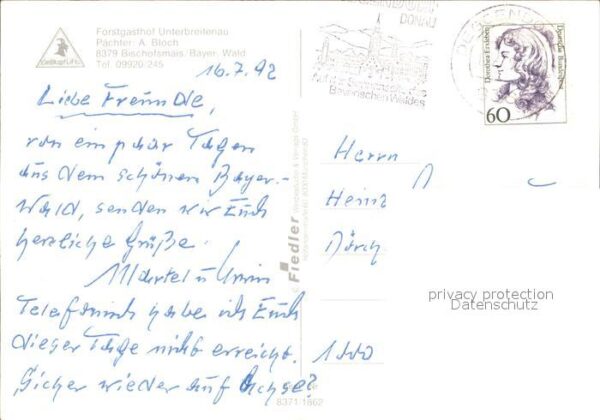 Forstgasthof Unterbreitenau
Pächter: A. Bloch
8379 Bischofsmais/Bayer. Wald
Tel. 09920/245
16.7.92
Liebe Freunde,
von ein paar Tagen
aus dem schönen Bayer.-
Wald, senden wir Euch
herzliche Grüße.
Telefonisch habe ich Euch
dieser Tage nicht erreicht.
Sicher wieder auf Achse?
Fiedler
8371 1862
DONAU
Bayerischen Waldes
DEGGENDORF
Dorothea Erxleben
Deutsche Bundespost
60
Herrn
Heinz
1000
privacy protection
Datenschutz